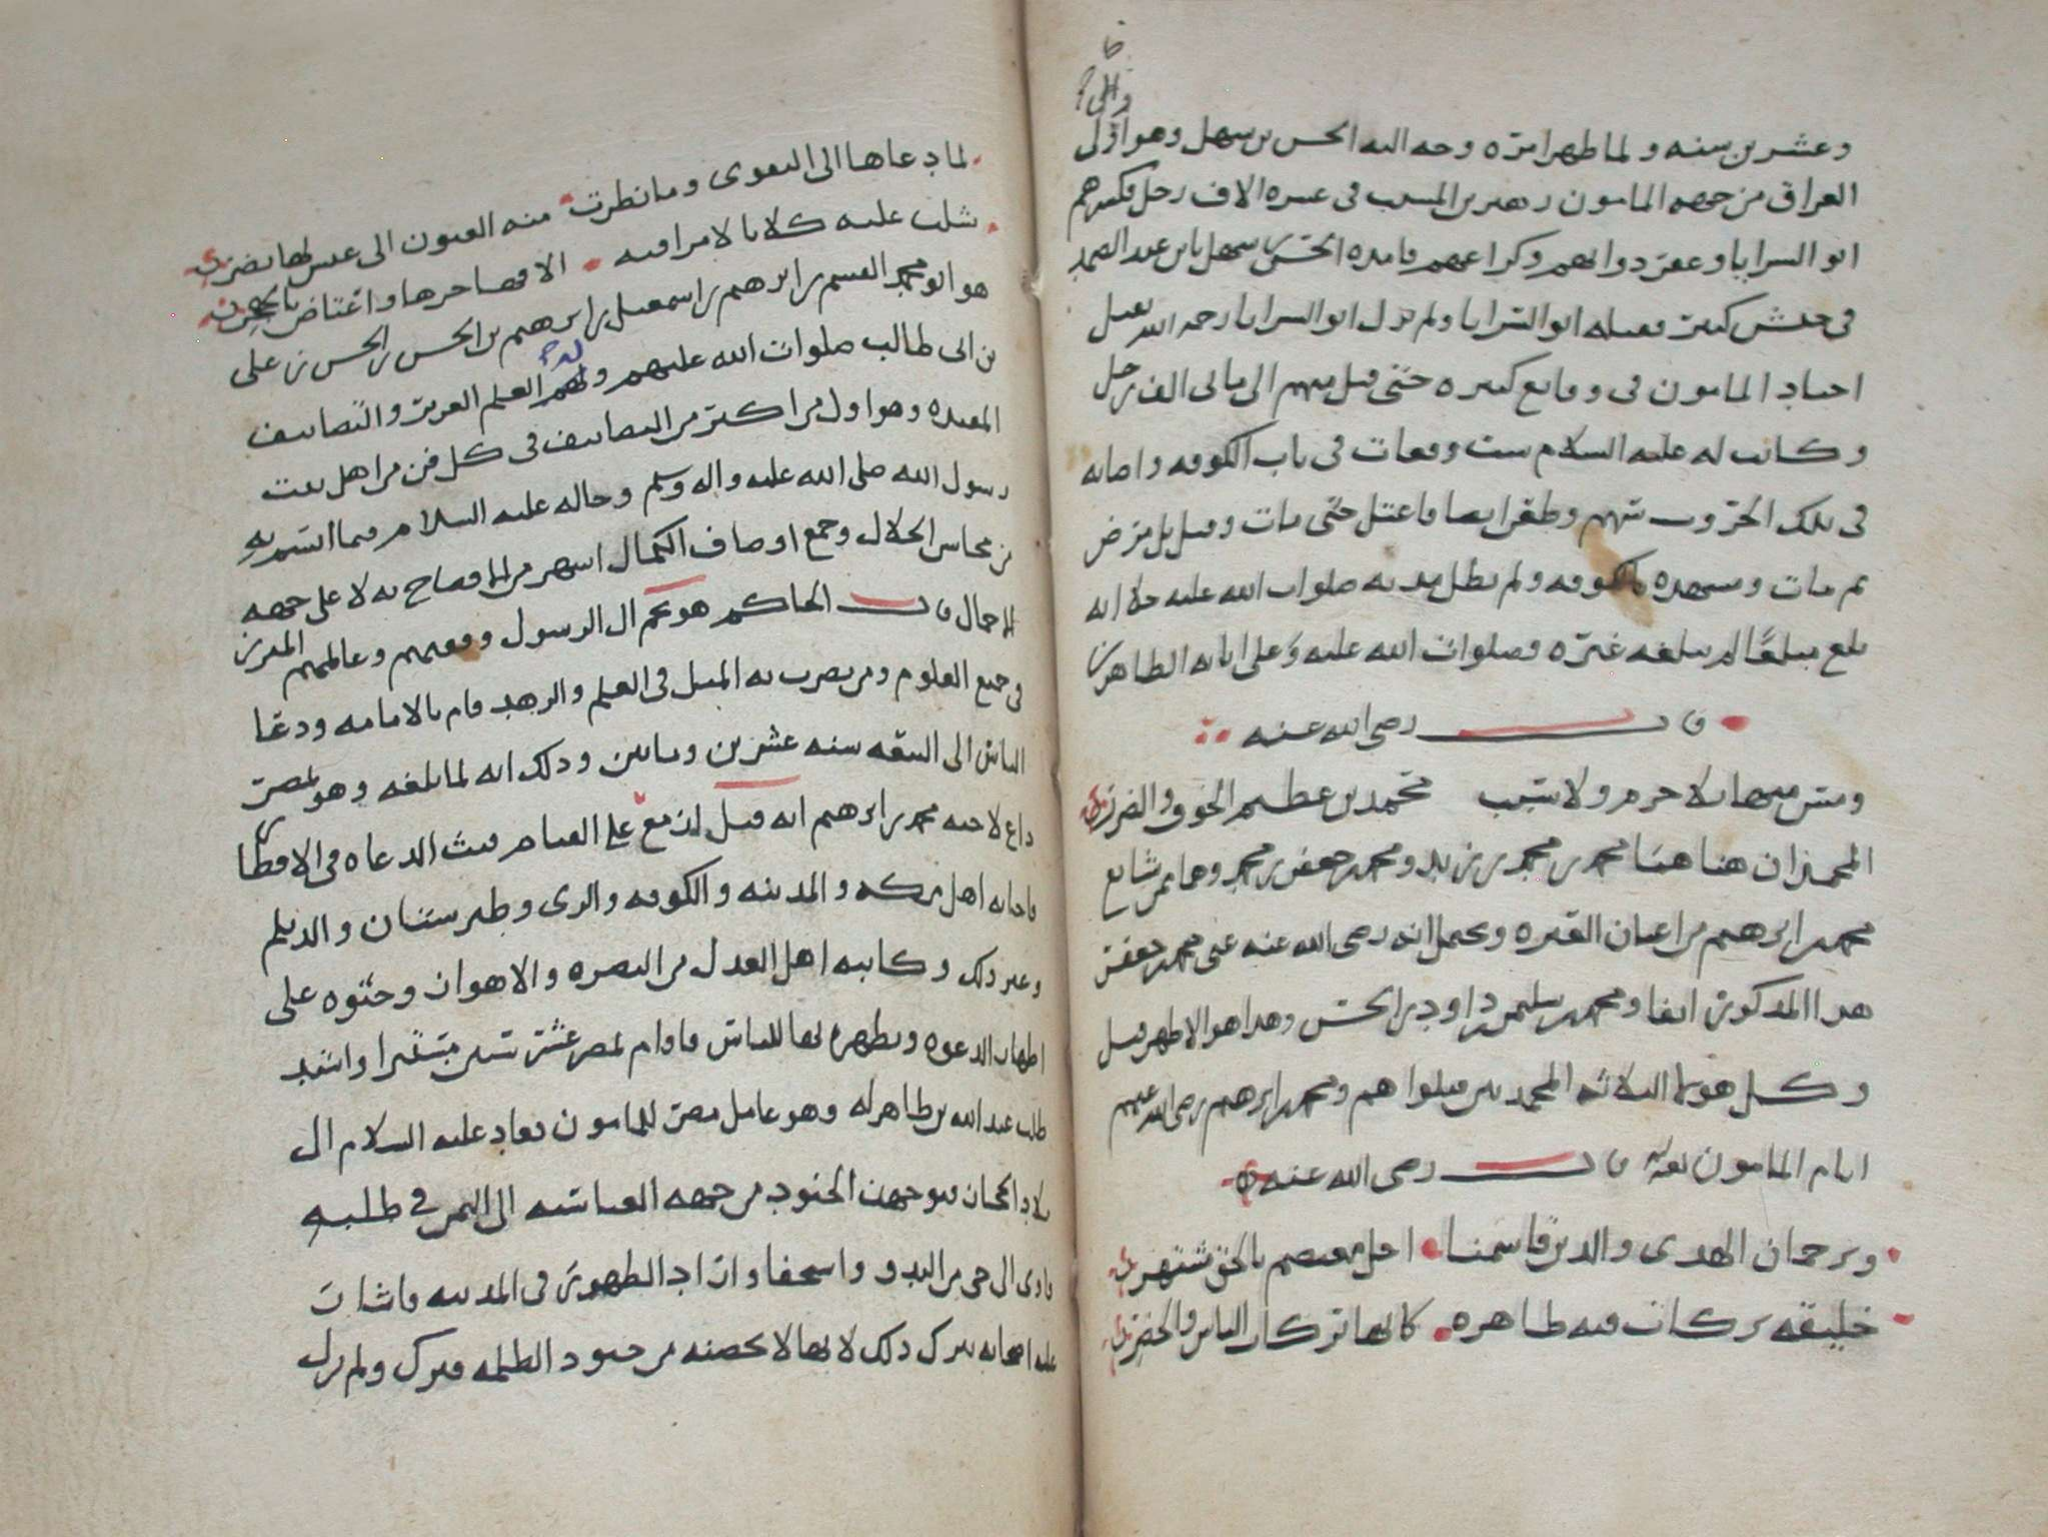 والى
وعشرين سنه ولما ظهر امره وجه اليه الحسن بن سهل وهو اذ ذاك والي
العراق من جهه المامون زهير بن المسيب في عشره الاف رجل فكسرهم
ابو السرايا وعقر دوابهم وكراعهم فامده الحسن بن سهل بابن عبد الصمد
في جيش كبير فقتله ابو السرايا ولم يزل ابو السرايا رحمه الله يقتل
اجناد المامون في وقايع كثيره حتى قتل منهم الى مايتي الف رجل
وكانت له عليه السلام ست وقعات في باب الكوفه واصابه
في تلك الحروب سهم وظفر ايضا فاعتل حتى مات وقيل بل مرض
ثم مات ومشهده بالكوفه ولم تطل مدته صلوات الله عليه خلا انه
بلغ مبلغًا لم يبلغه غيره وصلوات الله عليه وعلى ابايه الطاهرين
قال رضي الله عنه
ومن سميهما لا جرم ولا سبب محمد بن عظيم الخوف والضرر
المحمدان هنا هما محمد بن محمد بن زيد ومحمد بن جعفر بن محمد وهما ممن شايع
محمد بن ابرهيم من اعيان العتره ويحتمل انه رضي الله عنه عنى محمد بن جعفر
هذا المذكور انفا ومحمد بن سليمن بن داود بن الحسن وهذا هو الاظهر قيل
وكل هولا الثلاثه المحمدين قتلوا هم ومحمد بن ابرهيم رضي الله عنهم
ايام المامون قال رضي الله عنه
وترجمان الهدى والدين قاسمنا اجل معتصم بالحق مشتهر
خليقه بركات فيه طاهره كانها تركات الناس والخضر
لما دعاها الى التقوى وما نظرت منه العيون الى عيس لها بضر
شلت عليه كلابا لا مراقبه الا فصاحرها واعتاض بالهجر
هو ابو محمد القسم بن ابرهيم بن اسمعيل بن ابرهيم بن الحسن بن الحسن بن علي
بن ابي طالب صلوات الله عليهم وله العلم الغزير والتصانيف
المفيده وهو اول من اكثر من التصانيف في كل فن من اهل بيت
رسول الله صلى الله عليه واله وسلم وحاله عليه السلام فيما اتسم به
من محاسن الخلال وجمع اوصاف الكمال اشهر من الافصاح به لا على جهه
الاجمال قال الحاكم هو نجم ال الرسول وفقيههم وعالمهم المبرز
في جميع العلوم ومن يضرب به المثل في العلم والزهد قام بالامامه ودعا
الناس الى البيعه سنه عشرين ومايتين وذلك انه لما بلغه وهو بمصر
داع لاخيه محمد بن ابرهيم انه قتل ازمع على القيام فبث الدعاه في الاقطار
فاجابه اهل مكه والمدينه والكوفه والري وطبرستان والديلم
وغير ذلك وكاتبه اهل العدل من البصره والاهواز وحثوه على
اظهار الدعوه وتظهره لها للناس فاقام بمصر عشر سنين مستترا واشتد
طلب عبد الله بن طاهر له وهو عامل مصر للمامون فعاد عليه السلام الى
بلاد الحجاز فتوجهت الجنود من جهه العباسيه الى اليمن في طلبه
فاوى الى حي من البدو واستخفا واراد الظهور في المدينه فاشار
عليه اصحابه بترك ذلك لانها لا تحصنه من جنود الظلمه فترك ولم يزل